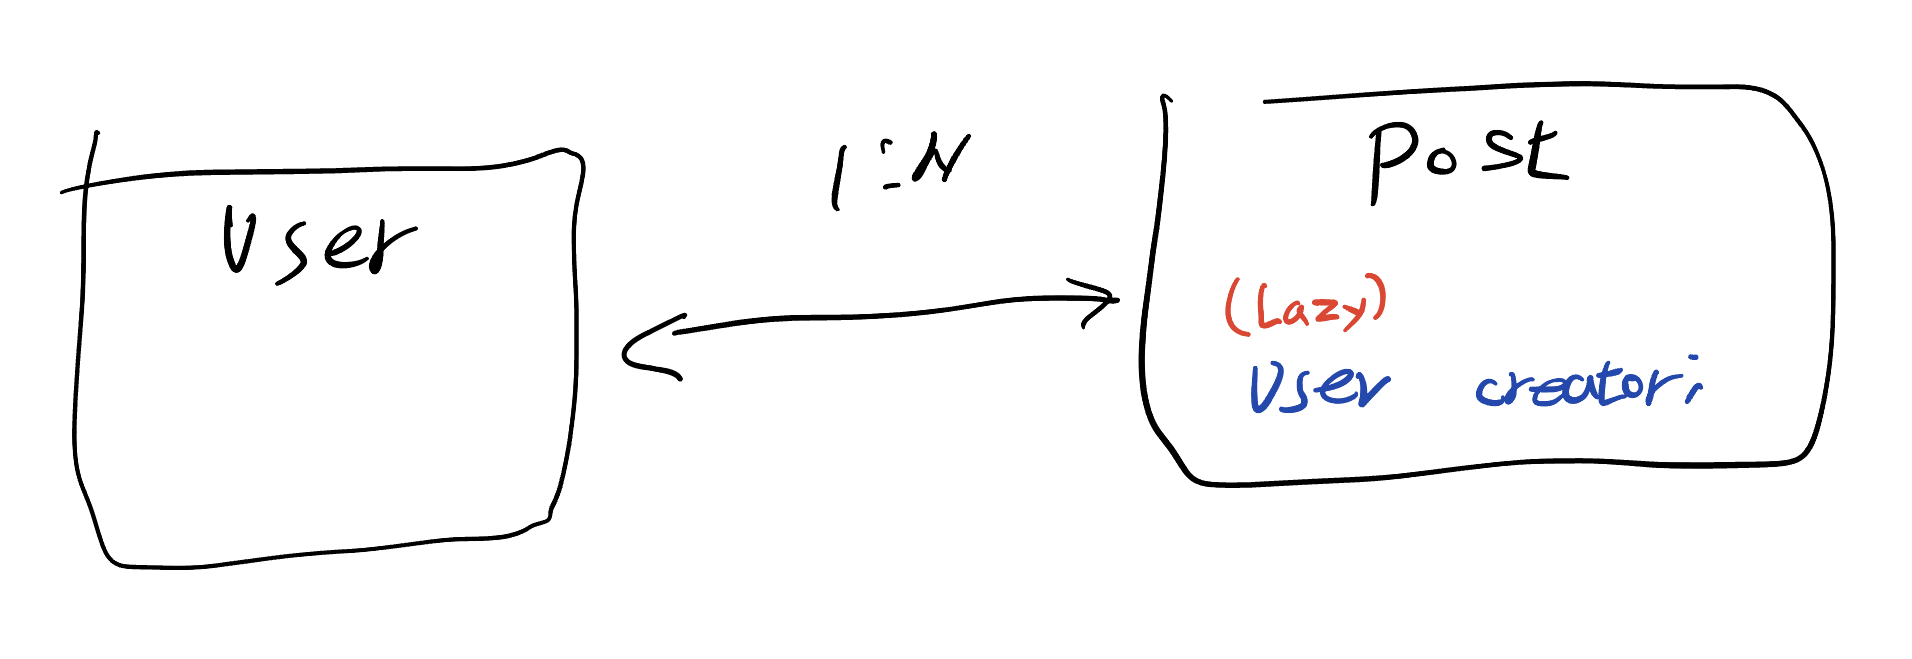 User
1:N
Post
(Lazy)
User creator;